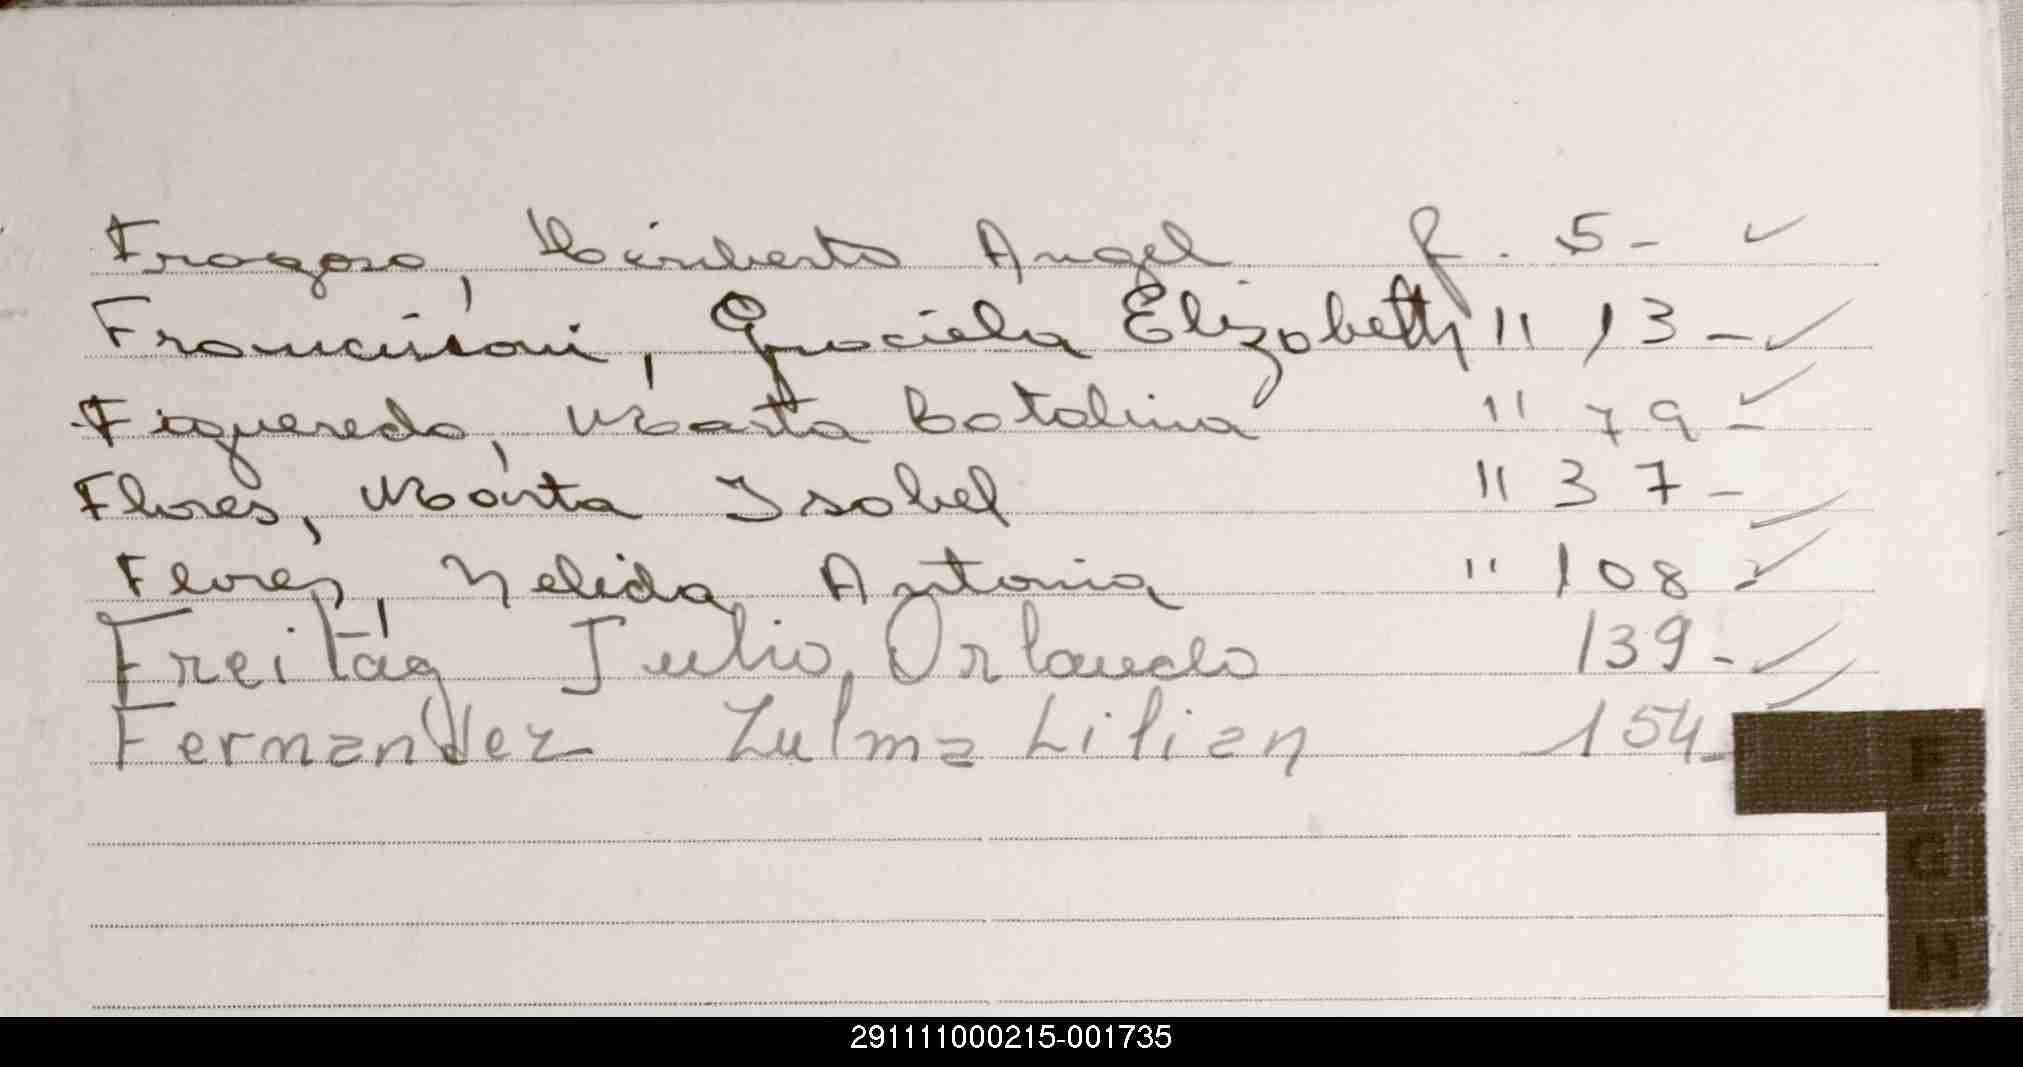 Fragoso, Heriberto Angel f. 5 - ✓
Francisconi, Graciela Elizabeth " 13 - ✓
Figueredo, Marta Catalina " 79 - ✓
Flores, Marta Isabel " 37 - ✓
Flores, Nelida Antonia " 108 - ✓
Freitag Julio, Orlando 139 - ✓
Fernandez Zulma Lilian 154 - ✓
F
G
H
291111000215-001735